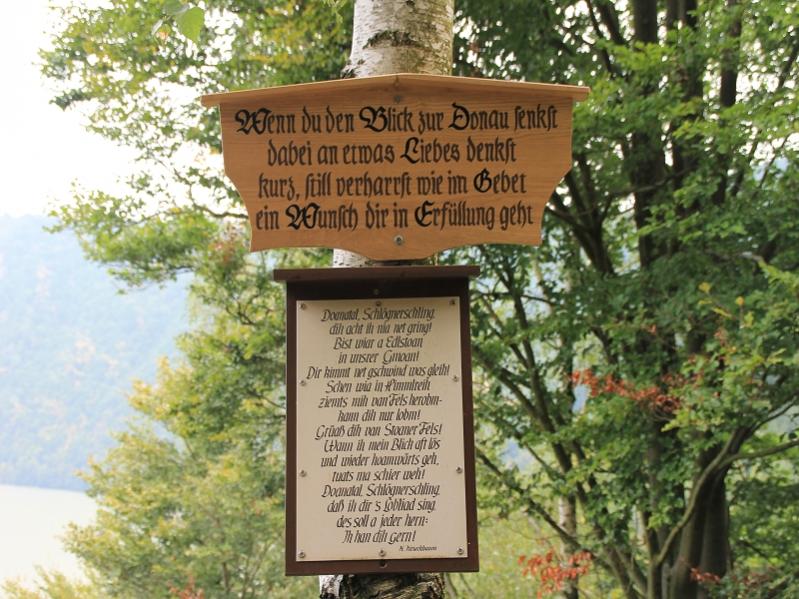 Wenn du den Blick zur Donau senkst
dabei an etwas Liebes denkst
kurz, still verharrst wie im Gebet
ein Wunsch dir in Erfüllung geht
Doanatal, Schlögnerschling,
dih acht ih nia net gring!
Bist wiar a Edlstoan
in unsrer Gmoan!
Dir kimmt net gschwind was gleih!
Schen wia in Himmlreih
ziemts mih van Fels herobm-
kann dih nur lobm!
Grüaß dih van Stoaner Fels!
Wann ih mein Blick aft lös
und wieder hoamwärts geh,
tuats ma schier weh!
Doanatal, Schlögnerschling,
daß ih dir 's Lobliad sing,
des soll a jeder hern:
Ih han dih gern!